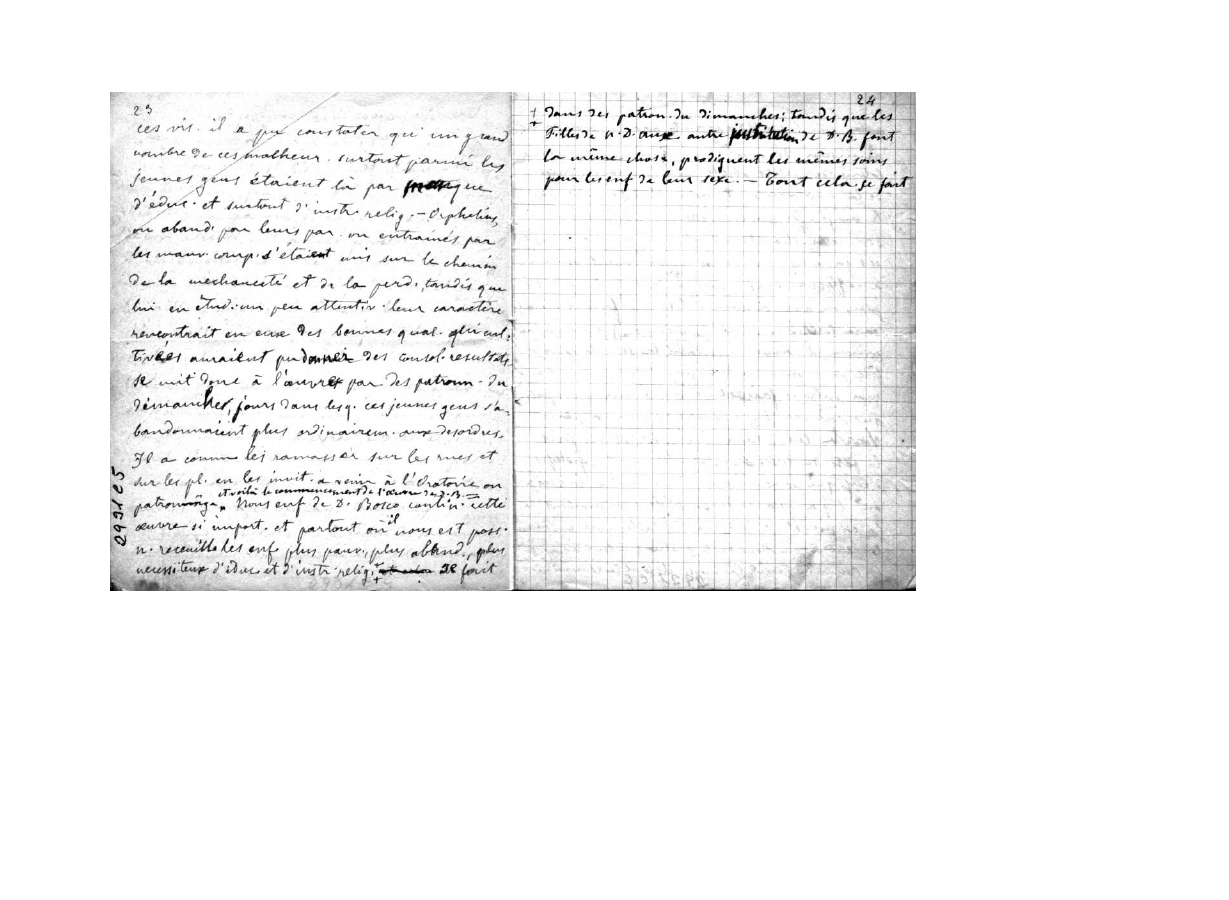 23
ces vis. il a pu constater qu'un grand
nombre de ces malheur. surtout parmi les
jeunes gens étaient là par manque
d'éduc. et surtout d'instr. relig. – Orphelins,
ou aband. par leurs par. ou entrainés par
les mauv. comp. s'étaient mis sur le chemin
de la mechanceté et de la perd., tandis que
lui en étud. un peu attentiv. leur caractère
rencontrait en eux des bonnes qual. qui cul-
tivées auraient pu donner des consol. resultats.
se mit donc à l'œuvre par des patron. du
dimanches, jours dans lesq. ces jeunes gens s'a-
bandonnaient plus ordinairem. aux desordres.
Il a comm les ramasser sur les rues et
sur les pl. en les invit. a venir à l'Oratoire ou
et voilà le commencement de l'œuvre de D. B. =
patronage. Nous enf de D. Bosco contin. cette
œuvre si import. et partout où il nous est poss.
n. recueill les enf. plus pauv., plus aband., plus
necessiteux d'éduc. et d'instr. relig. + se font
2931 e5
24
+ dans des patron. du dimanches; tandis que les
Filles de N. D. aux. autre institution de D. B. font
la même chose, prodiguent les mêmes soins
pour les enf de leur sexe. – Tout cela se fait